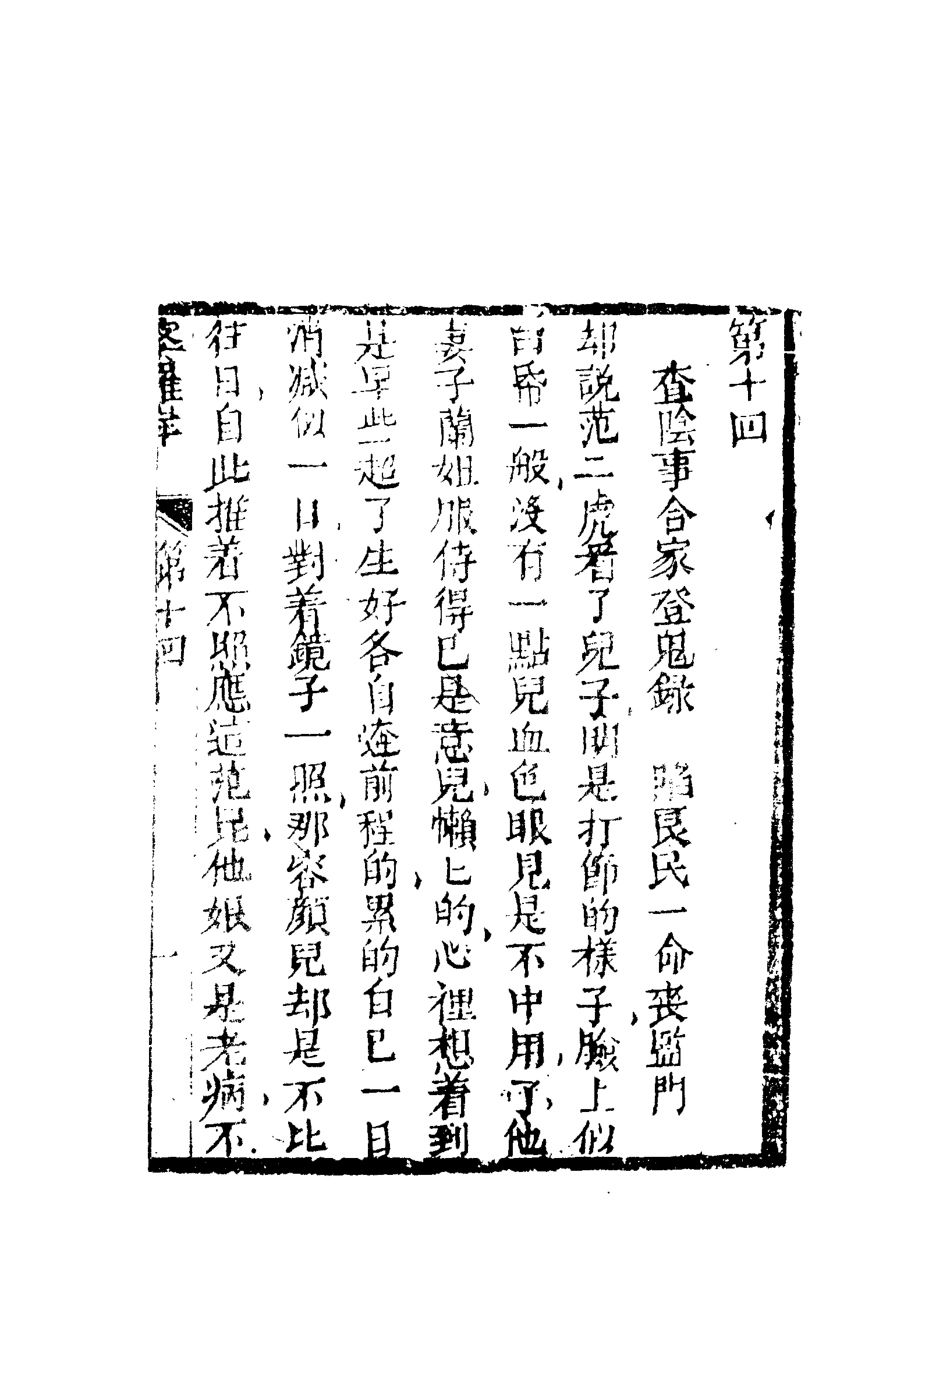 第十四
查陰事合家登鬼録　陷良民一命丧監門
却説范二虎看了兒子明是打篩的樣子臉上似
白帋一般没有一點兒血色眼見是不中用了他
妻子蘭姐服侍得已是意兒懶上的心裡想着到
是早些超了生好各自趕前程的累的自已一日
消减似一日對着鏡子一照那容顔兒却是不比
往日自此推着不照應這范昆他娘又是老病不
第十四
一